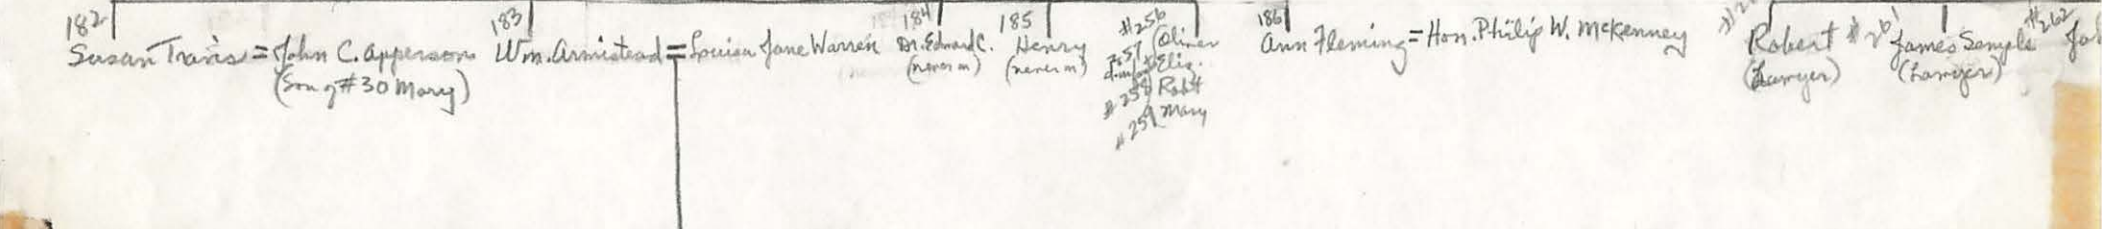 182
Susan Travis = John C. Apperson
(Son of #30 Mary)
183
Wm. Armistead = Louisa Jane Warren
184
Dr. Edward C.
(never m)
185
Henry
(never m)
#256 Oliver
#257 Eliz.
d. infant
#258 Robt
#259 Mary
186
Ann Fleming = Hon. Philip W. McKenney
Robert
(Lawyer)
#261
James Semple
(Lawyer)
#262